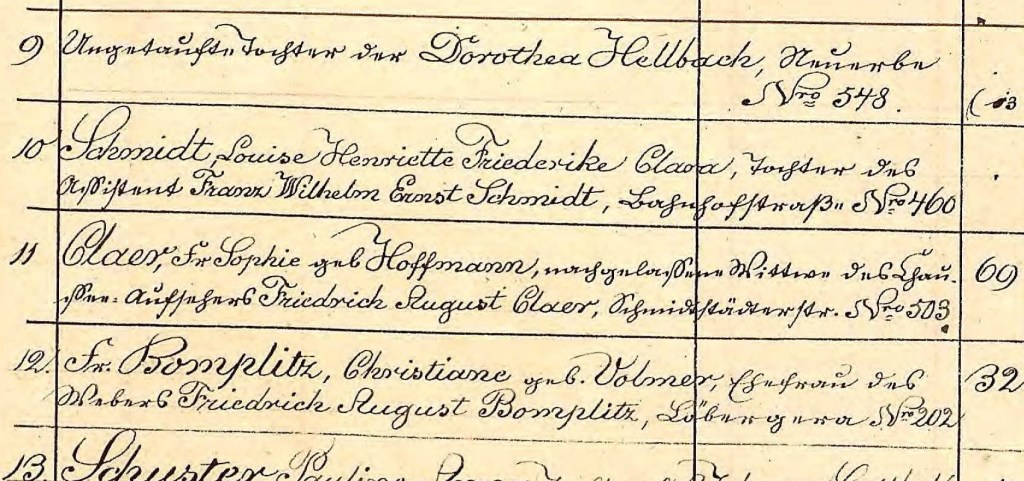 9 Ungetaufte Tochter der Dorothea Hellbach, Neuerbe
Nro 548.
10 Schmidt, Louise Henriette Friederike Clara, Tochter des
Assistent Franz Wilhelm Ernst Schmidt, Bahnhofstraße Nro 460
11 Claer, Fr Sophie geb Hoffmann, nachgelassene Wittwe des Chau-
ssee-Aufsehers Friedrich August Claer, Schmidtstädterstr. Nro 503
69
12. Fr. Bomplitz, Christiane geb. Volmer, Ehefrau des
Webers Friedrich August Bomplitz, Löbergera Nro 202
32
13. Schuster Pauline